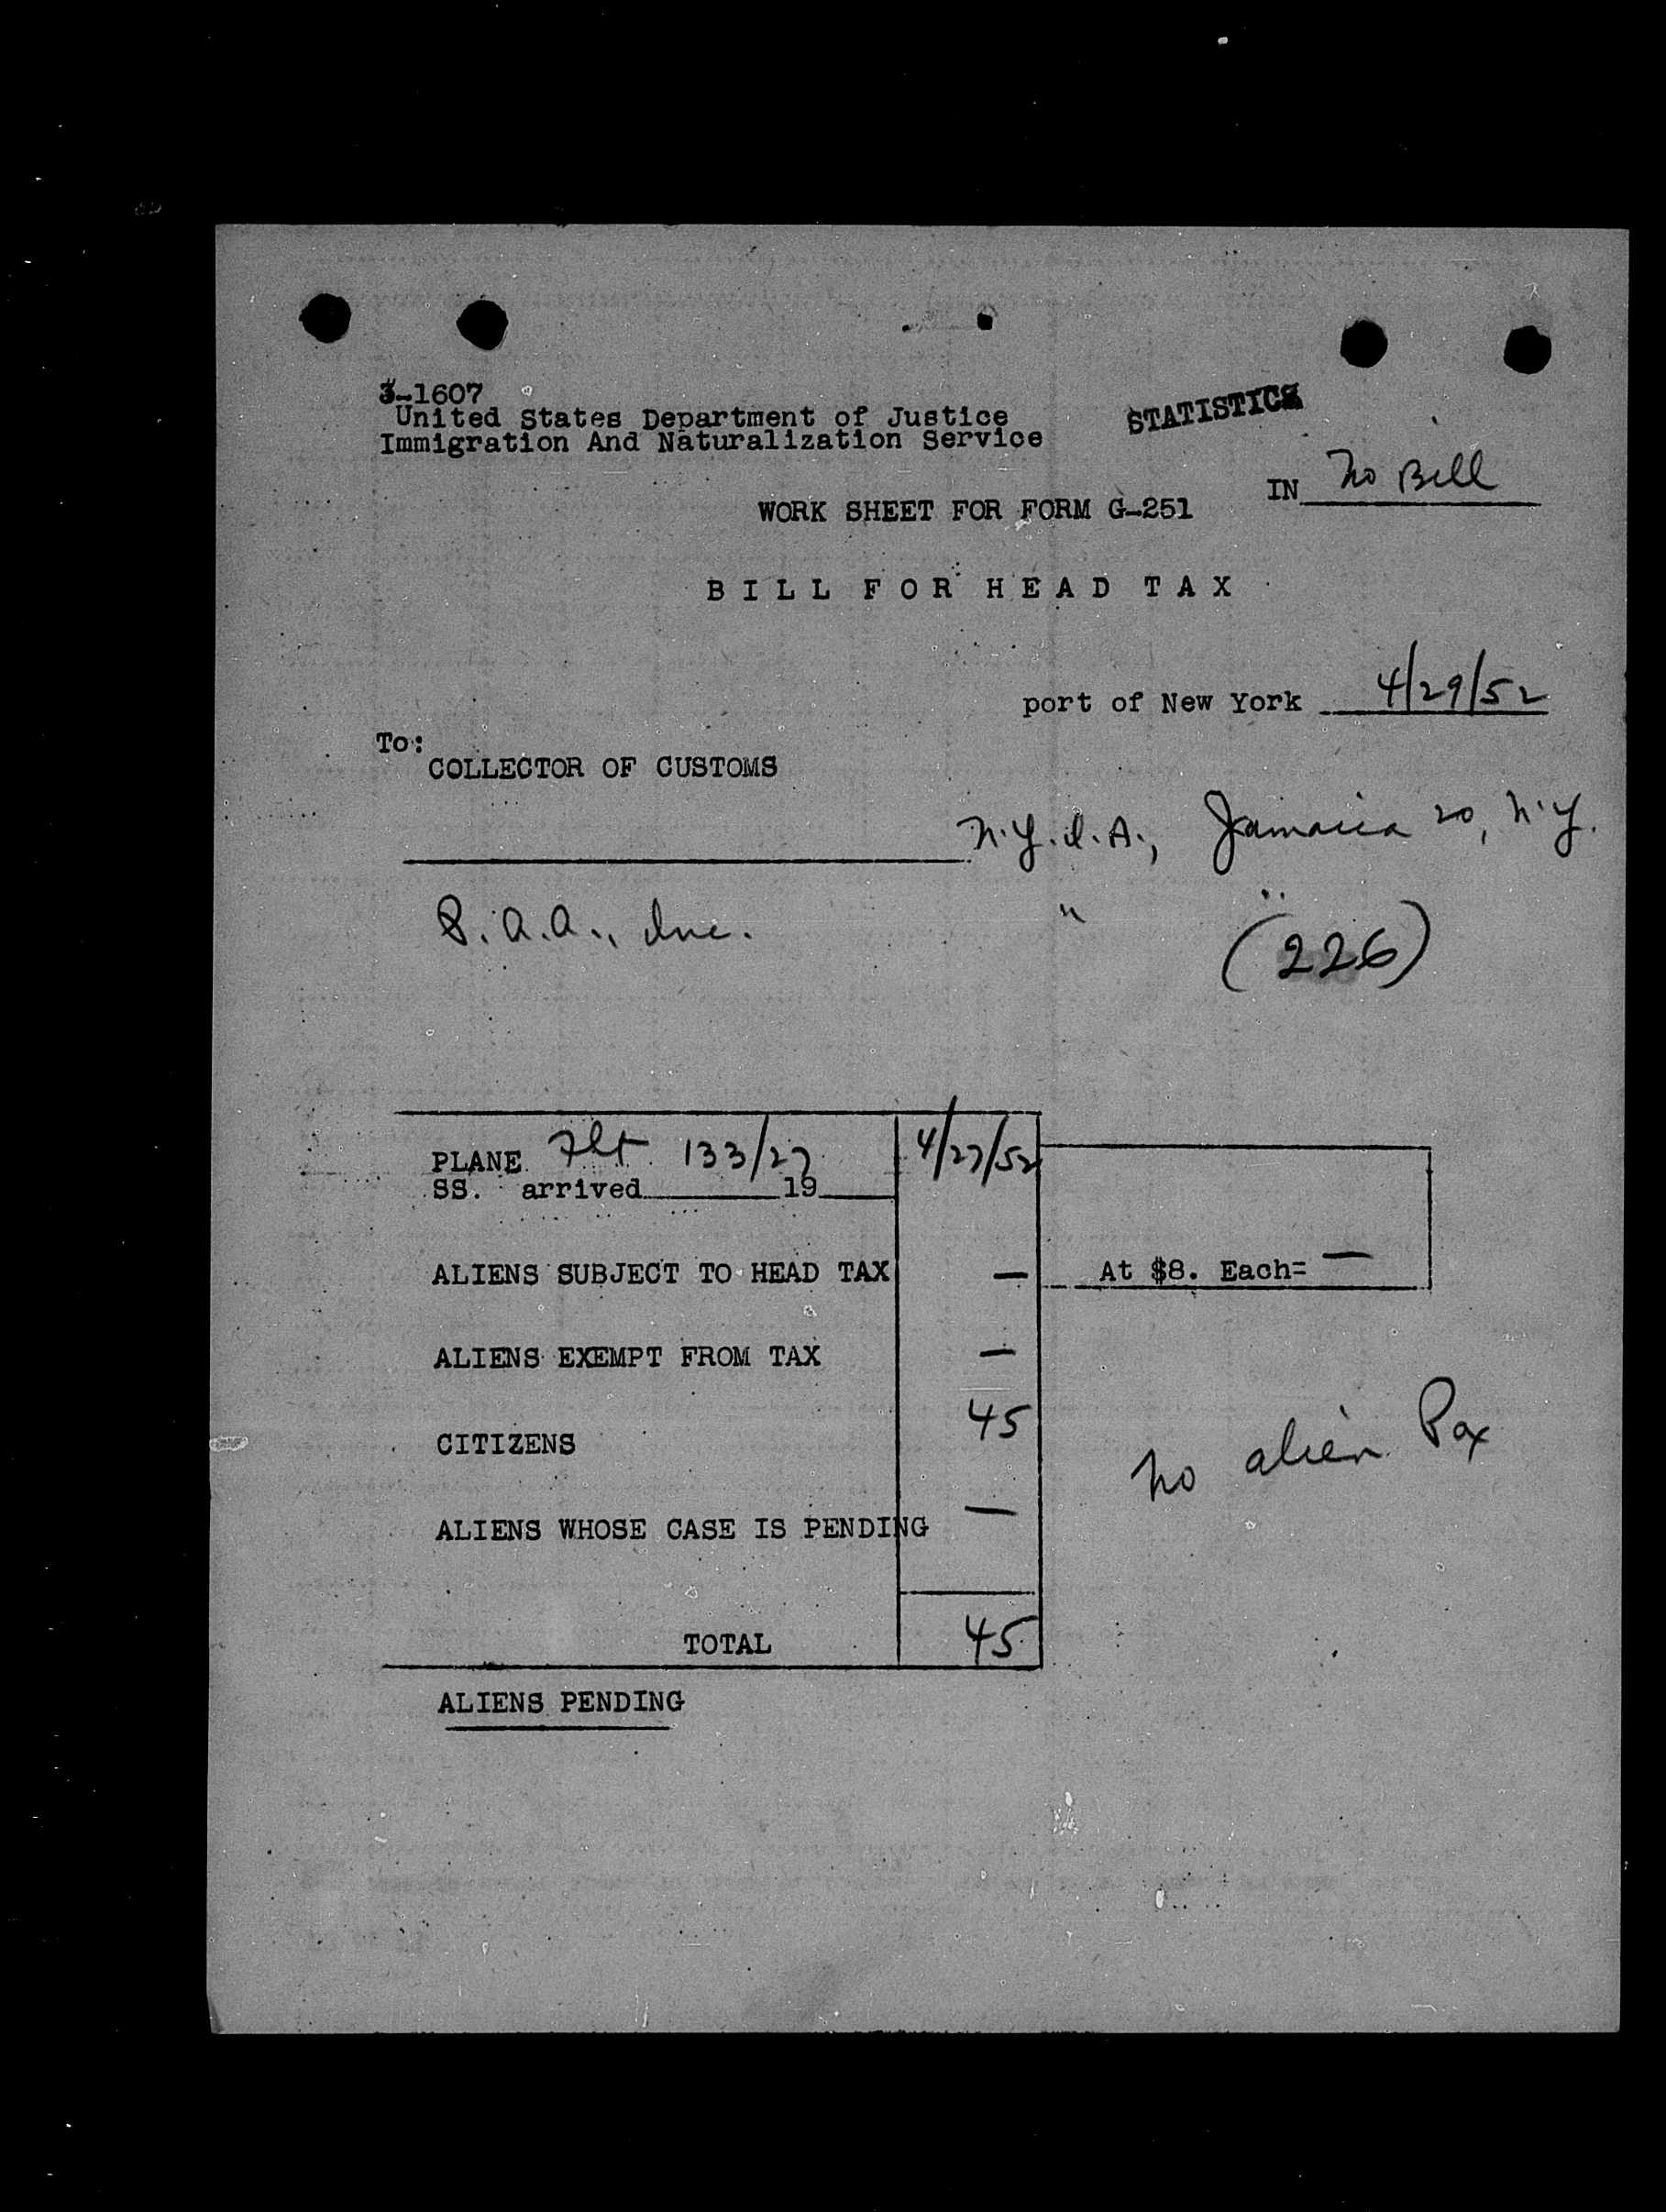 3-1607
United States Department of Justice
Immigration And Naturalization Service
STATISTICS
IN No Bill
WORK SHEET FOR FORM G-251
BILL FOR HEAD TAX
port of New York 4/29/52
To:
COLLECTOR OF CUSTOMS
N.Y.I.A., Jamaica 20, N.Y.
P.A.A., Inc. " "
(226)
PLANE Flt 133/27 4/27/52
SS. arrived 19
ALIENS SUBJECT TO HEAD TAX — At $8. Each= —
ALIENS EXEMPT FROM TAX —
CITIZENS 45
No alien Pax
ALIENS WHOSE CASE IS PENDING —
TOTAL 45
ALIENS PENDING